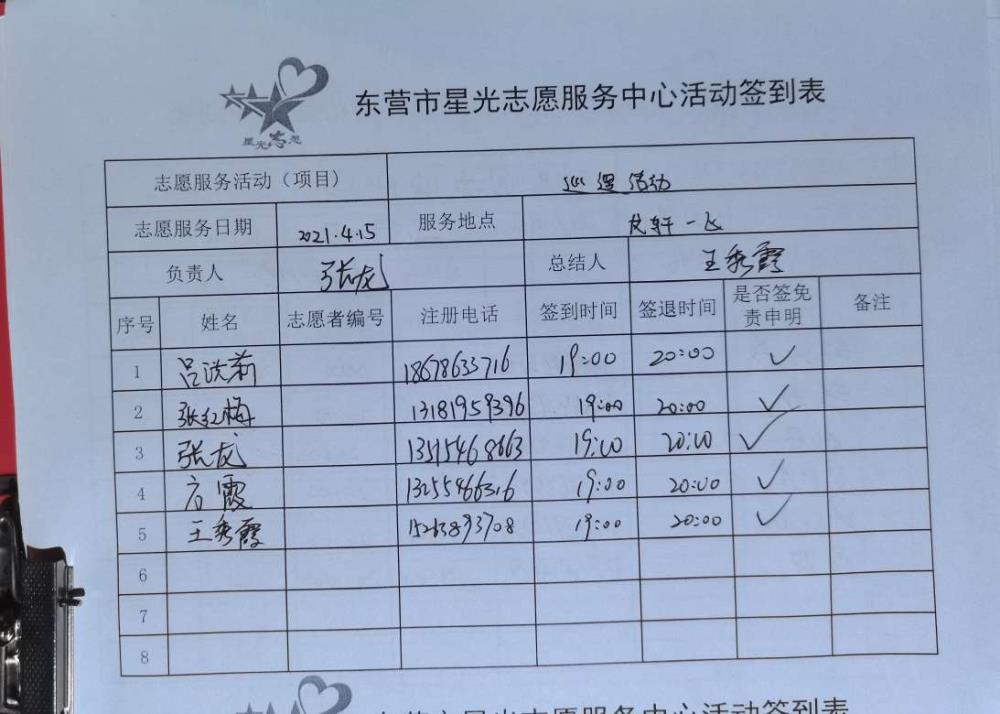 星光志愿
东营市星光志愿服务中心活动签到表
志愿服务活动（项目） 巡逻活动
志愿服务日期 2021.4.15 服务地点 龙轩一飞
负责人 张龙 总结人 王秀霞
序号 姓名 志愿者编号 注册电话 签到时间 签退时间 是否签免责申明 备注
1 吕洪莉 18678633716 19:00 20:00 ✓
2 张红梅 13181959396 19:00 20:00 ✓
3 张龙 13515468663 19:00 20:00 ✓
4 方霞 13255466316 19:00 20:00 ✓
5 王秀霞 15263893708 19:00 20:00 ✓
6
7
8
东营市星光志愿服务中心活动签到表